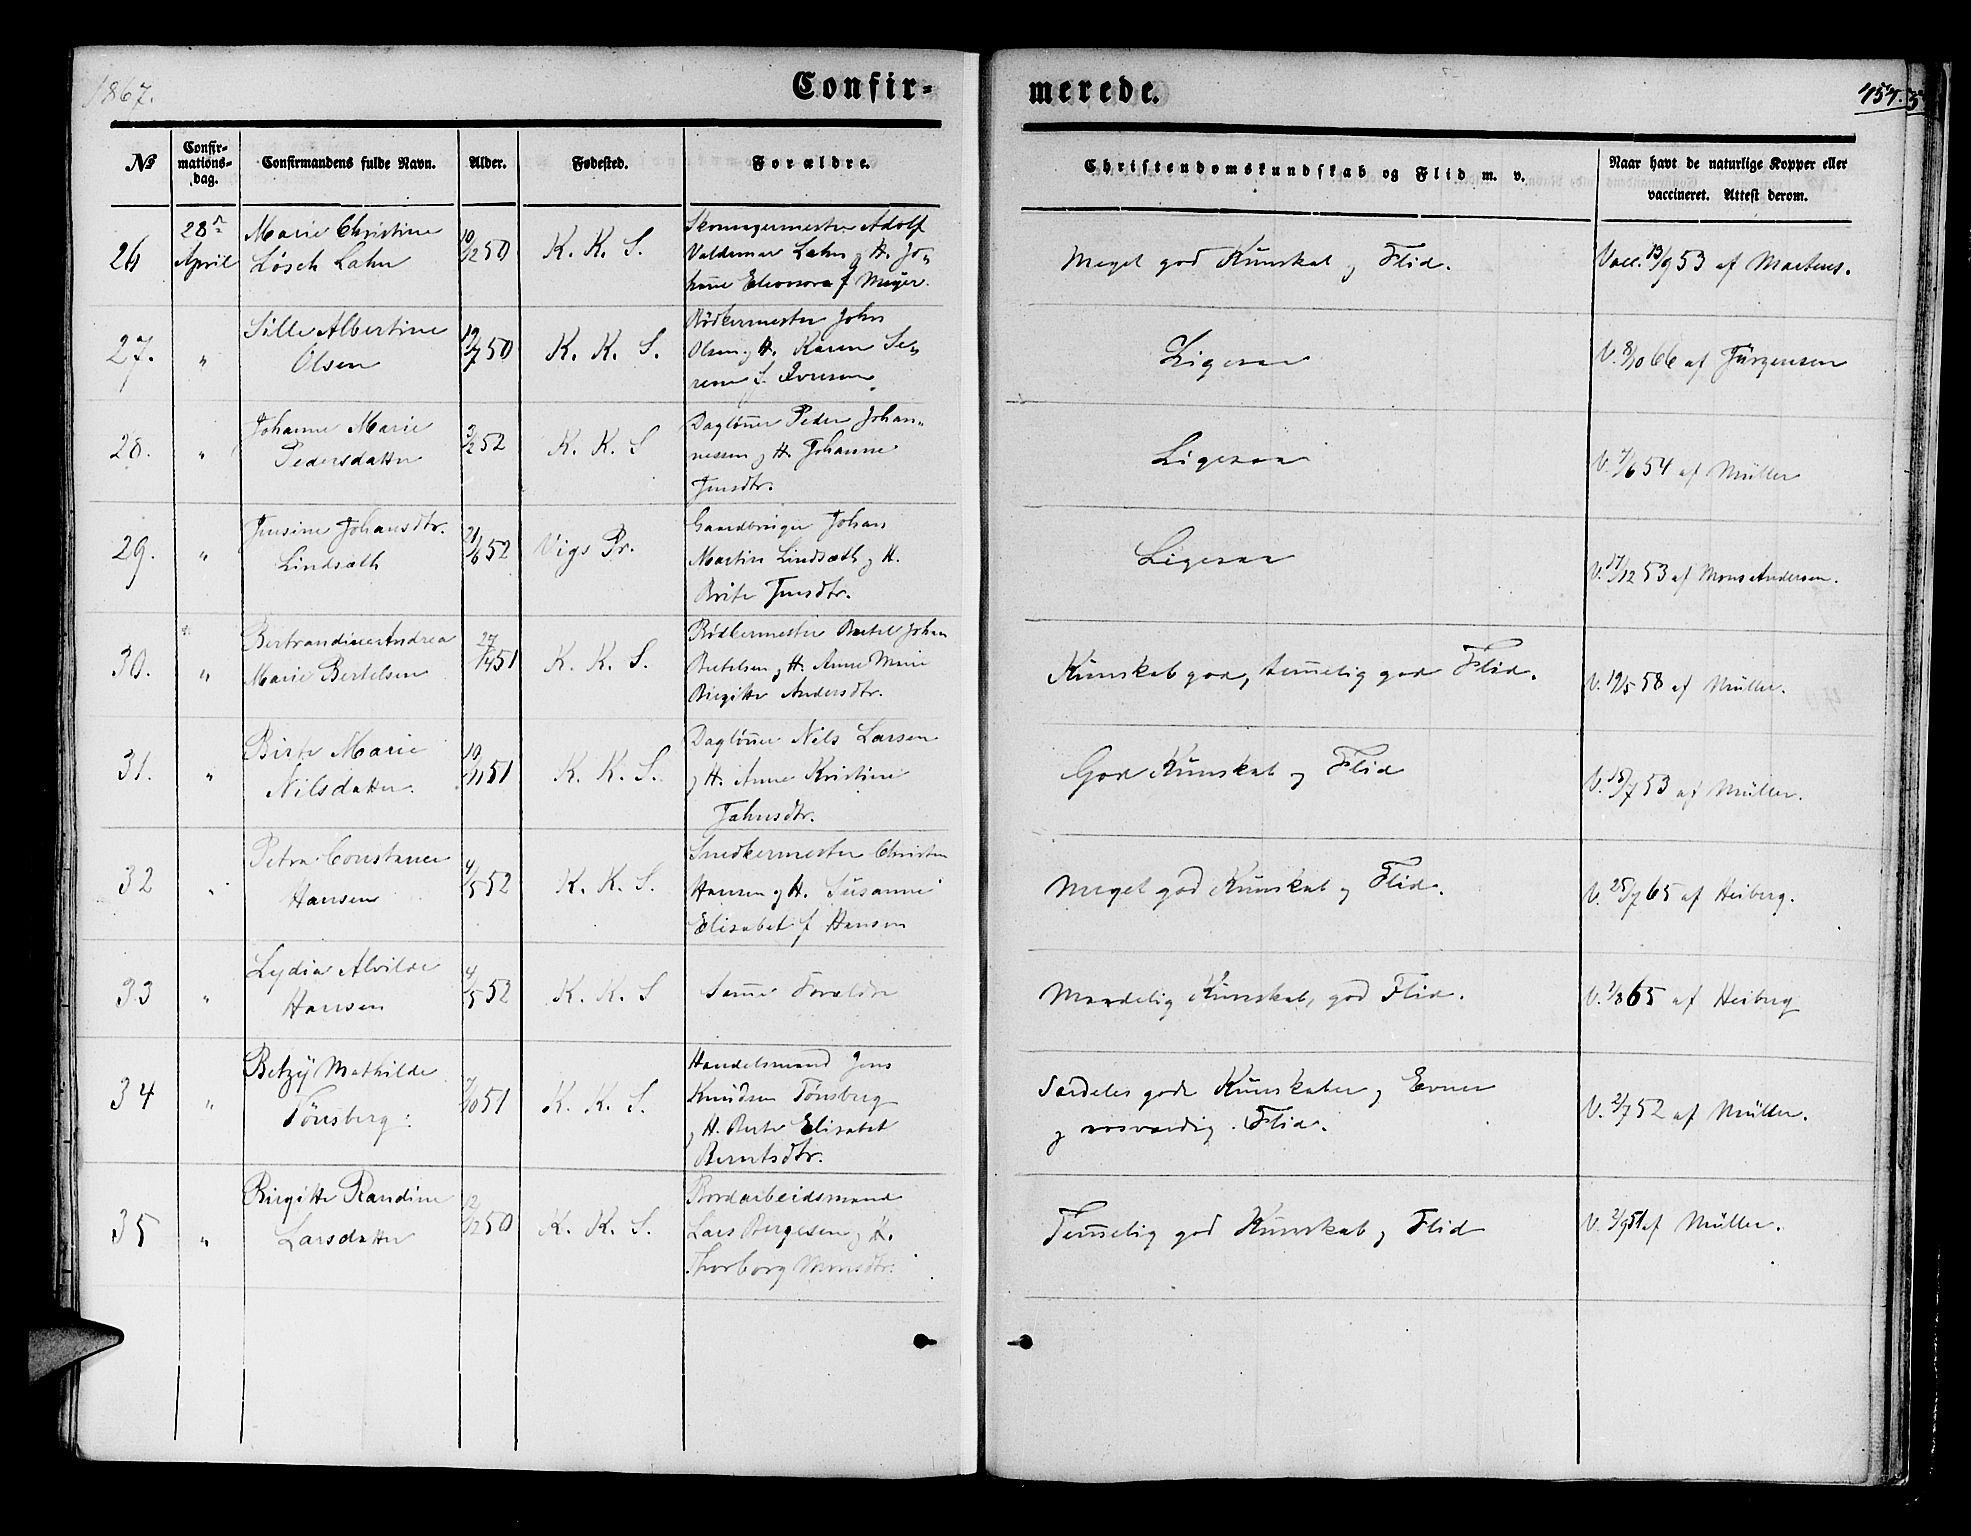 1867.
Confir-
merede.
454.
No
Confir-
mations-
dag.
Confirmandens fulde Navn.
Alder.
Fødested.
Forældre.
Christendomskundskab og Flid m. v.
Naar havt de naturlige Kopper eller
vaccineret. Attest derom.
26
28de
April
Marie Christine
Løsch Lahn
10/12 50
K. K. S.
Adolf
Valdemar Lahn og H. Jo-
hanne Eleonora f Meyer.
Meget god Kunskab og Flid.
Vacc. 13/9 53 af Martens.
27.
"
Sille Albertine
Olsen
19/7 50
K. K. S.
Bödkermester John
Olsen og H. Karen Se-
rene S. Iversen
Ligesaa
V. 8/10 66 af Jürgensen
28.
"
Johanne Marie
Pedersdatter
3/2 52
K. K. S
Daglöner Peder Johan-
nessen og H. Johanne
Jensdtr.
Ligesaa
V. 7/6 54 af Müller
29.
"
Jensine Johansdtr.
Lindsæth
21/6 52
Vigs Pr.
Gaardbruger Johan
Martin Lindsæth og H.
Brite Jensdtr.
Ligesaa
V. 17/12 53 af Mons Andersen.
30.
"
Bertrandine Andrea
Marie Bertelsen
27/4 51
K. K. S.
Bödkermester Bertel Johan
Bertelsen og H. Anne Marie
Birgitte Andersdtr.
Kunskab god, temmelig god Flid.
V. 19/5 58 af Müller.
31.
"
Birte Marie
Nilsdatter.
10/11 51
K. K. S.
Daglöner Nils Larsen
og H. Anne Kristine
Jahnsdtr.
God Kunskab og Flid
V. 15/7 53 af Müller.
32
"
Petra Constance
Hansen
4/5 52
K. K. S.
Snedkermester Christen
Hansen og H. Susanne
Elisabet f Hansen
Meget god Kunskab og Flid.
V. 25/7 65 af Heiberg.
33
"
Lydia Alvilde
Hansen
4/5 52
K. K. S
Samme Forældre
Maadelig Kunskab, god Flid.
V. 1/8 65 af Heiberg
34
"
Betzy Mathilde
Tönsberg.
7/10 51
K. K. S.
Handelsmand Jens
Knudsen Tönsberg
og H. Berte Elisabet
Berntsdtr.
Særdeles gode Kunskaber og Evner
og rosværdig Flid.
V. 2/7 52 af Müller.
35
"
Birgitte Randine
Larsdatter
12/12 50
K. K. S.
Bordarbeidsmand
Lars Børgesen og H.
Thorborg Monsdtr.
Temmelig god Kunskab og Flid
V. 2/9 51 af Müller.